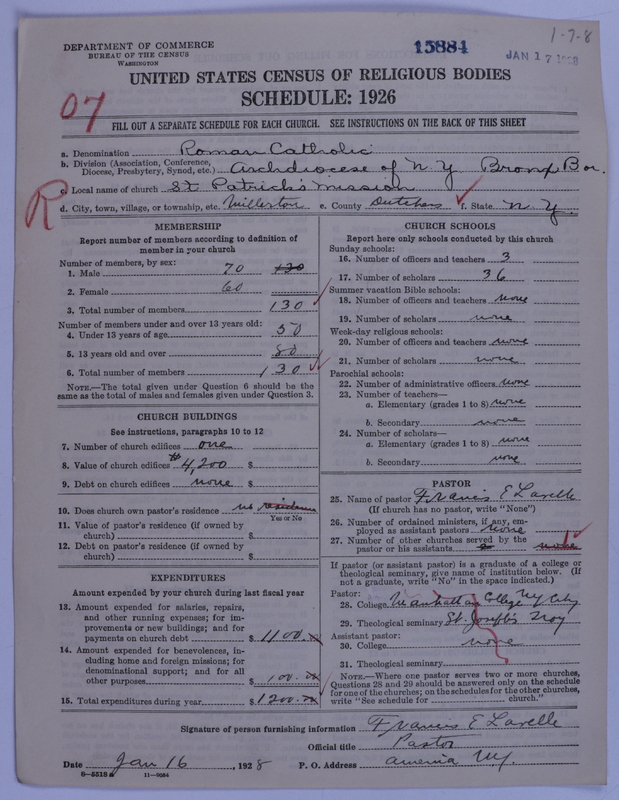 1-7-8
DEPARTMENT OF COMMERCE
BUREAU OF THE CENSUS
WASHINGTON
15884
JAN 17 1928
UNITED STATES CENSUS OF RELIGIOUS BODIES
SCHEDULE: 1926
07
FILL OUT A SEPARATE SCHEDULE FOR EACH CHURCH. SEE INSTRUCTIONS ON THE BACK OF THIS SHEET
a. Denomination Roman Catholic
b. Division (Association, Conference, Diocese, Presbytery, Synod, etc.) Archdiocese of N.Y. Bronx Bor.
R
c. Local name of church St Patrick's Mission
d. City, town, village, or township, etc. Millerton e. County Dutchess f. State N.Y.
MEMBERSHIP
Report number of members according to definition of
member in your church
Number of members, by sex:
1. Male 70 130
2. Female 60
3. Total number of members 130
Number of members under and over 13 years old:
4. Under 13 years of age 50
5. 13 years old and over 80
6. Total number of members 130
NOTE.—The total given under Question 6 should be the
same as the total of males and females given under Question 3.
CHURCH BUILDINGS
See instructions, paragraphs 10 to 12
7. Number of church edifices one
8. Value of church edifices $4,200 $
9. Debt on church edifices none $
10. Does church own pastor's residence no residence
Yes or No
11. Value of pastor's residence (if owned by
church) $
12. Debt on pastor's residence (if owned by
church) $
EXPENDITURES
Amount expended by your church during last fiscal year
13. Amount expended for salaries, repairs,
and other running expenses; for im-
provements or new buildings; and for
payments on church debt $1100.
14. Amount expended for benevolences, in-
cluding home and foreign missions; for
denominational support; and for all
other purposes $100.
15. Total expenditures during year $1200.
CHURCH SCHOOLS
Report here only schools conducted by this church
Sunday schools:
16. Number of officers and teachers 3
17. Number of scholars 36
Summer vacation Bible schools:
18. Number of officers and teachers none
19. Number of scholars none
Week-day religious schools:
20. Number of officers and teachers none
21. Number of scholars none
Parochial schools:
22. Number of administrative officers none
23. Number of teachers—
a. Elementary (grades 1 to 8) none
b. Secondary none
24. Number of scholars—
a. Elementary (grades 1 to 8) none
b. Secondary none
PASTOR
25. Name of pastor Francis E Lavelle
(If church has no pastor, write "None")
26. Number of ordained ministers, if any, em-
ployed as assistant pastors none
27. Number of other churches served by the
pastor or his assistants none
If pastor (or assistant pastor) is a graduate of a college or
theological seminary, give name of institution below. (If
not a graduate, write "No" in the space indicated.)
Pastor:
28. College Manhattan College NY City
29. Theological seminary St. Joseph's Troy
Assistant pastor:
30. College none
31. Theological seminary
NOTE.—Where one pastor serves two or more churches,
Questions 28 and 29 should be answered only on the schedule
for one of the churches; on the schedules for the other churches,
write "See schedule for church."
Signature of person furnishing information Francis E Lavelle
Official title Pastor
Date Jan 16, 1928 P. O. Address Amenia N.Y.
8-5518a 11-9084